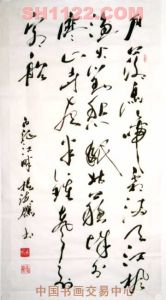 SH1122.COM
月落烏啼霜滿天江楓
漁火對愁眠姑蘇城外
寒山寺夜半鐘聲到
客船
中国书画交易中心